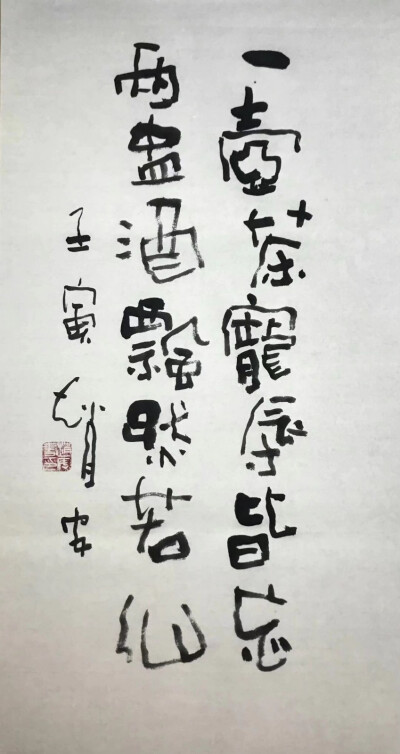 一壺茶寵辱皆忘
兩盅酒飄然若仙
壬寅 趙安